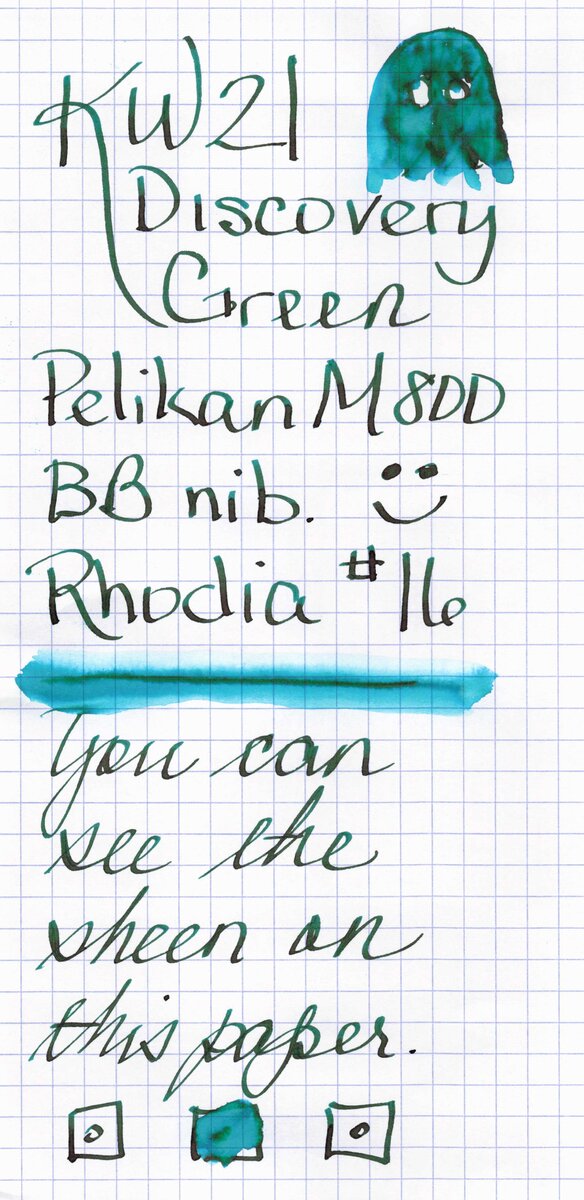 KWZI
Discovery
Green
Pelikan M800
BB nib.
Rhodia #16
You can
see the
sheen on
this paper.